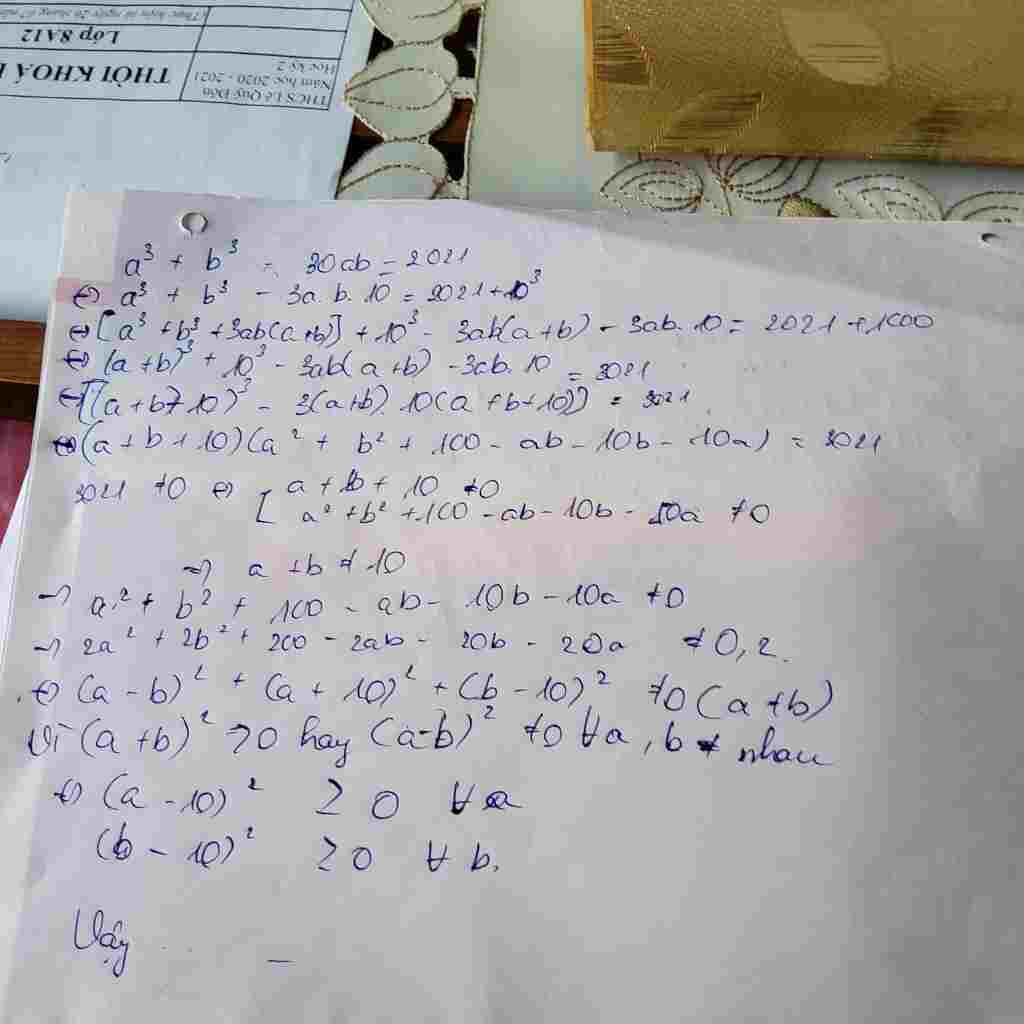 THCS Lê Quý Đôn
Năm học 2020 - 2021
Học kỳ 2
THỜI KHOÁ
Lớp 8A12
a³ + b³ = 30ab - 2021
⇔ a³ + b³ - 3a.b.10 = 2021+10³
⇔ [a³ + b³ + 3ab(a+b)] + 10³ - 3ab(a+b) - 3ab.10 = 2021 + 1000
⇔ (a+b)³ + 10³ - 3ab(a+b) - 3ab.10 = 3021
⇔ [(a+b+10)³ - 3(a+b).10(a+b+10)] = 3021
⇔ (a+b+10)(a² + b² + 100 - ab - 10b - 10a) = 3021
3021 ≠0 ⇔ [ a + b + 10 ≠0
a² + b² + 100 - ab - 10b - 10a ≠0
⇒ a + b ≠ 10
→ a² + b² + 100 - ab - 10b - 10a ≠0
→ 2a² + 2b² + 200 - 2ab - 20b - 20a ≠ 0,2.
⇔ (a - b)² + (a + 10)² + (b - 10)² ≠0 (a ≠b)
Vì (a + b)² >0 hay (a-b)² ≠0 ∀a, b ≠ nhau
⇔ (a - 10)² ≥ 0 ∀ a
(b - 10)² ≥ 0 ∀ b.
Vậy